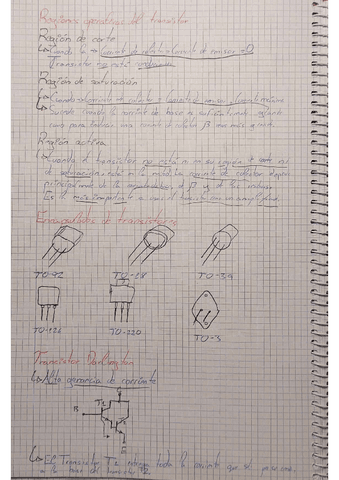 Regiones operativas del transistor
Región de corte
Cuando la corriente de colector = corriente de emisor = 0
Transistor no está
Región de saturación
Cuando corriente de colector = corriente de emisor = corriente máxima
Sucede cuando la corriente de base es suficientemente grande
como para inducir una corriente de colector β veces más grande.
Región activa
Cuando el transistor no está ni en su región de corte ni
de saturación, está en la media, la corriente de colector depende
principalmente de la de β y
Es la más importante si se usa el transistor como amplificador.
Encapsulados de transistores
TO-92
TO-18
TO-39
TO-126
TO-220
TO-3
Transistor Darlington
Alta ganancia de corriente
C
B
T1
E
El Transistor T1 entrega toda la corriente que
a la base del transistor T2